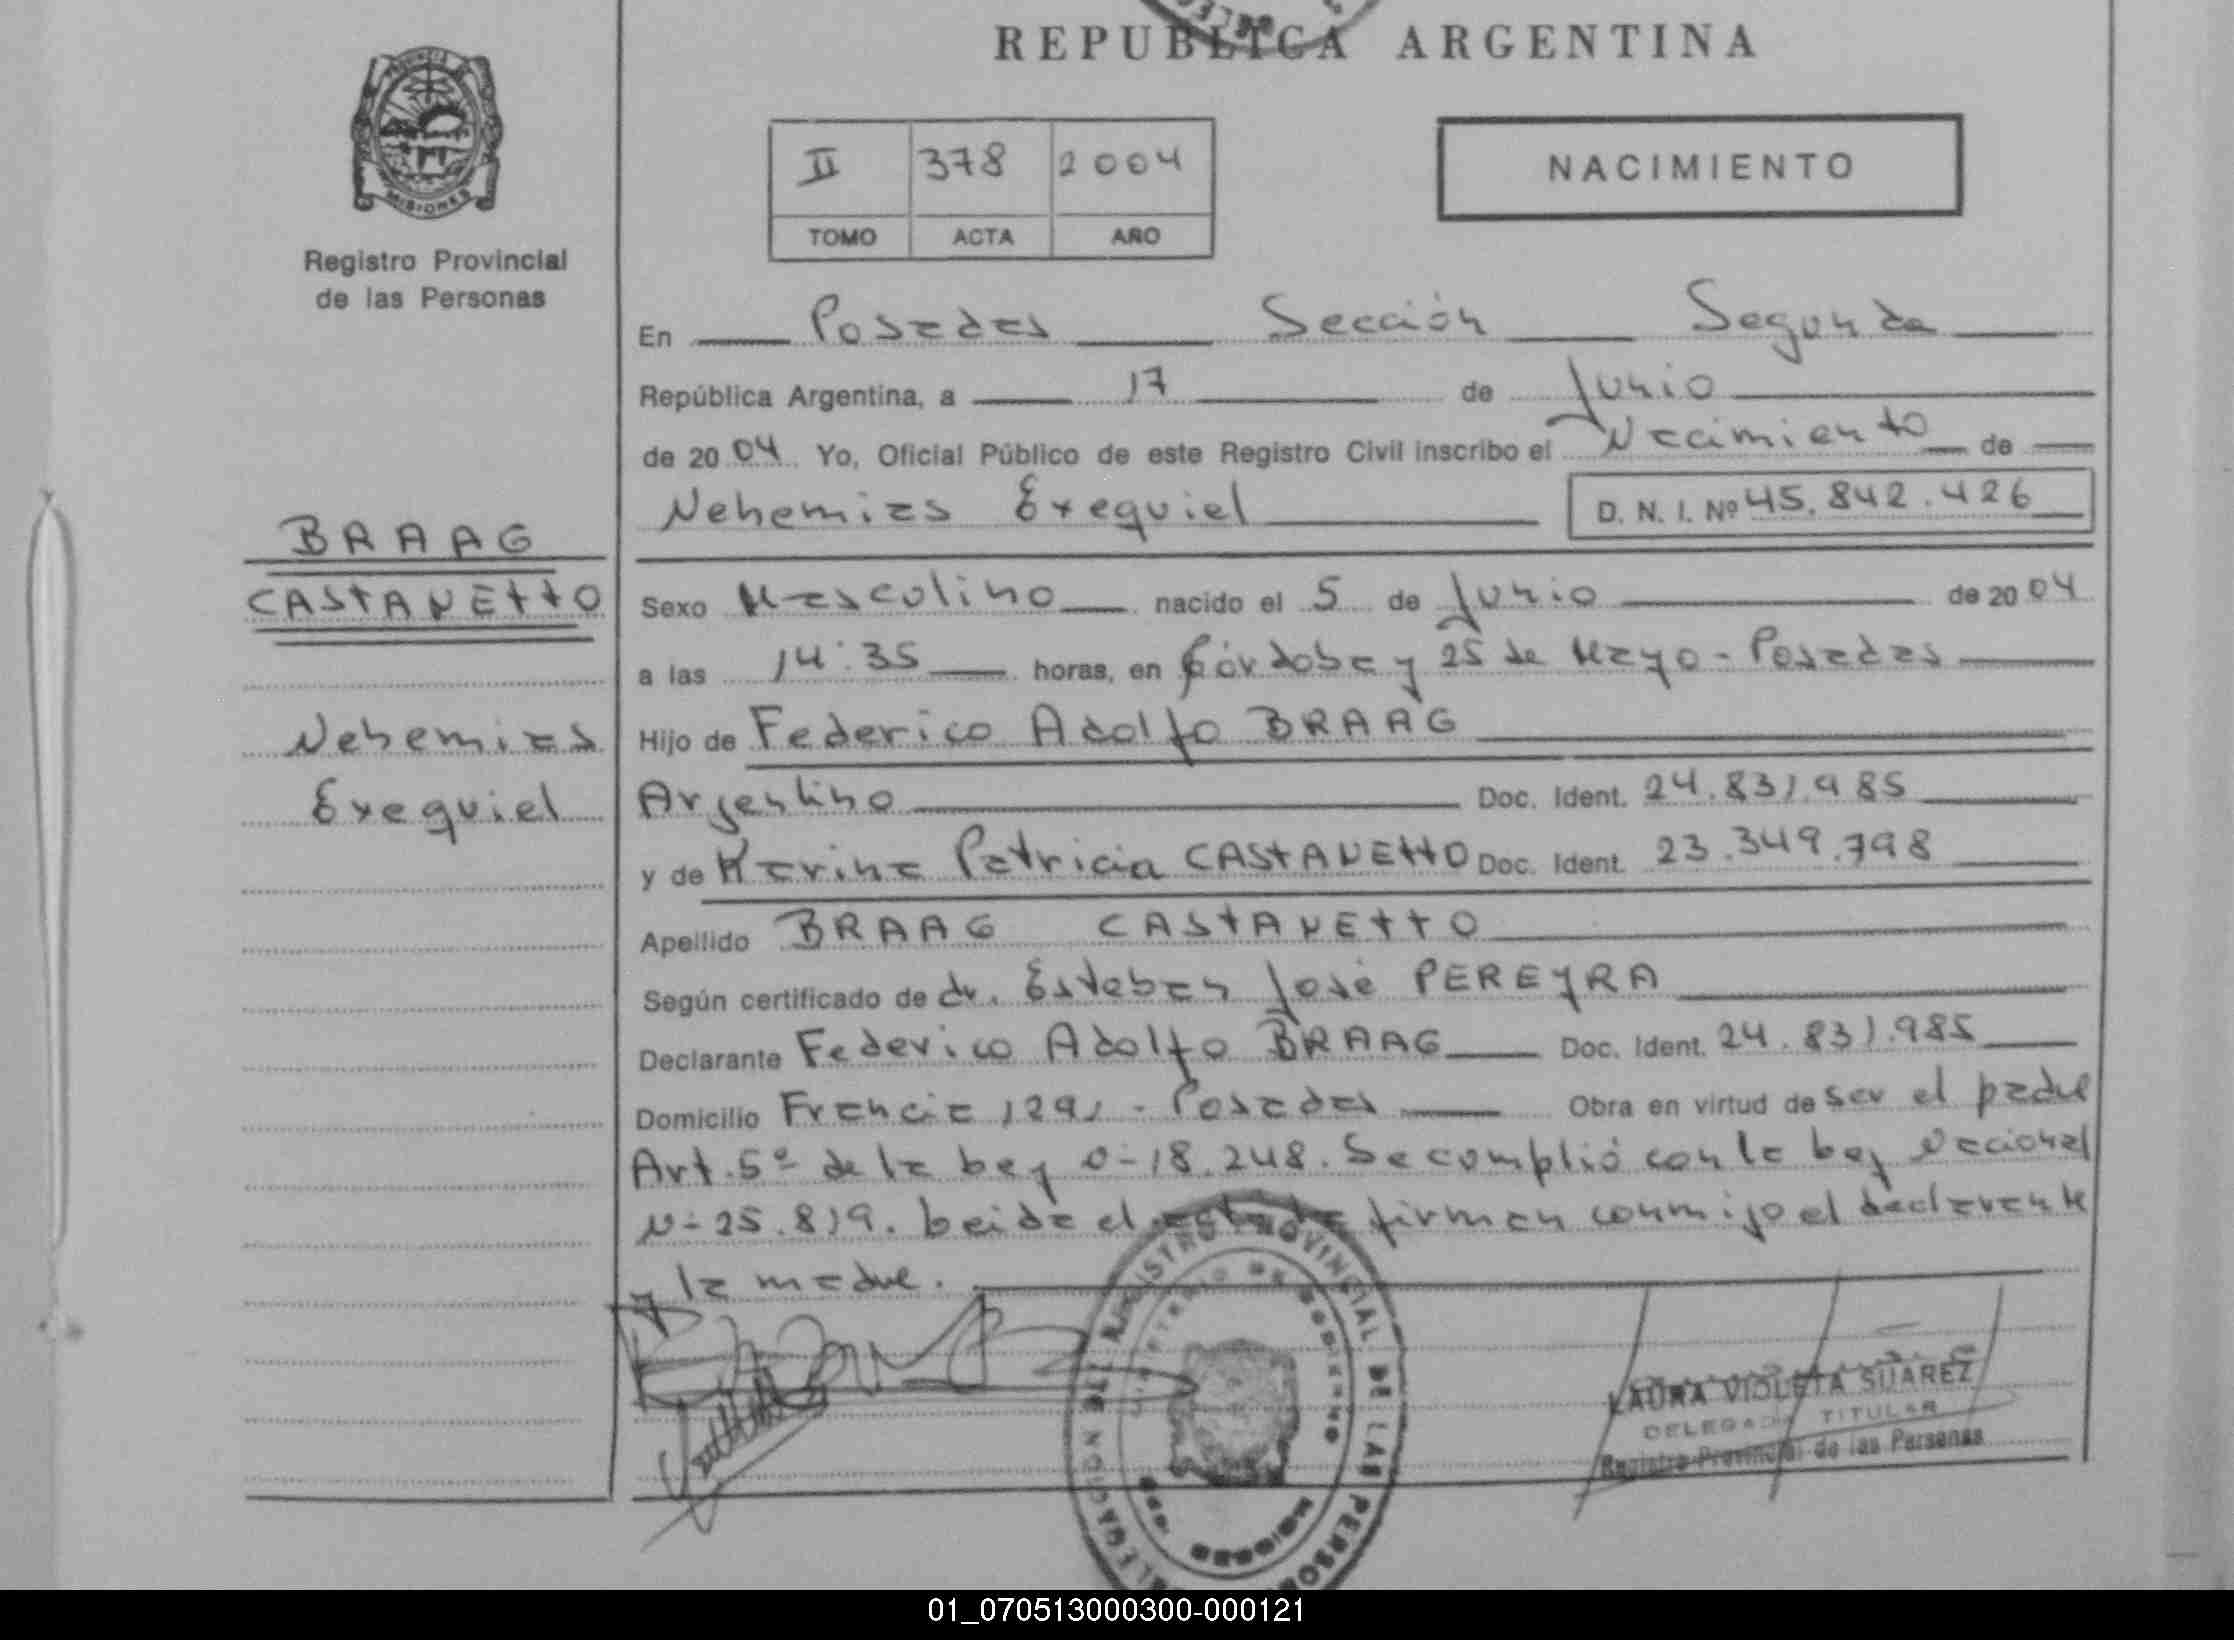 REPUBLICA ARGENTINA
PROVINCIA DE
MISIONES
Registro Provincial
de las Personas
II 378 2004
TOMO ACTA AÑO
NACIMIENTO
En Posadas Sección Segunda
República Argentina, a 17 de Junio
de 2004 Yo, Oficial Público de este Registro Civil inscribo el Nacimiento de
Nehemias Exequiel D. N. I. Nº 45.842.426
BRAAG
CASTANETTO
Nehemias
Exequiel
Sexo Masculino nacido el 5 de Junio de 2004
a las 14:35 horas, en Córdoba y 25 de Mayo - Posadas
Hijo de Federico Adolfo BRAAG
Argentino Doc. Ident. 24.831.985
y de Karina Patricia CASTANETTO Doc. Ident. 23.349.798
Apellido BRAAG CASTANETTO
Según certificado de dr. Esteban José PEREYRA
Declarante Federico Adolfo BRAAG Doc. Ident. 24.831.985
Domicilio Francia 1291 - Posadas Obra en virtud de ser el padre
Art. 5º de la Ley 0-18.248. Se cumplió con la Ley Nacional
N-25.819. Leida el acta la firman conmigo el declarante
y la madre.
REGISTRO PROVINCIAL DE LAS PERSONAS
MINISTERIO DE GOBIERNO
MISIONES
LAURA VIOLETA SUAREZ
DELEGADA TITULAR
Registro Provincial de las Personas
01_070513000300-000121